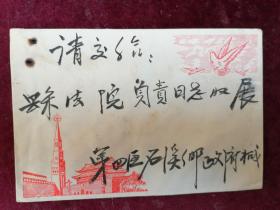 请交给：
县法院负责同志收展
第四区石溪乡政府械